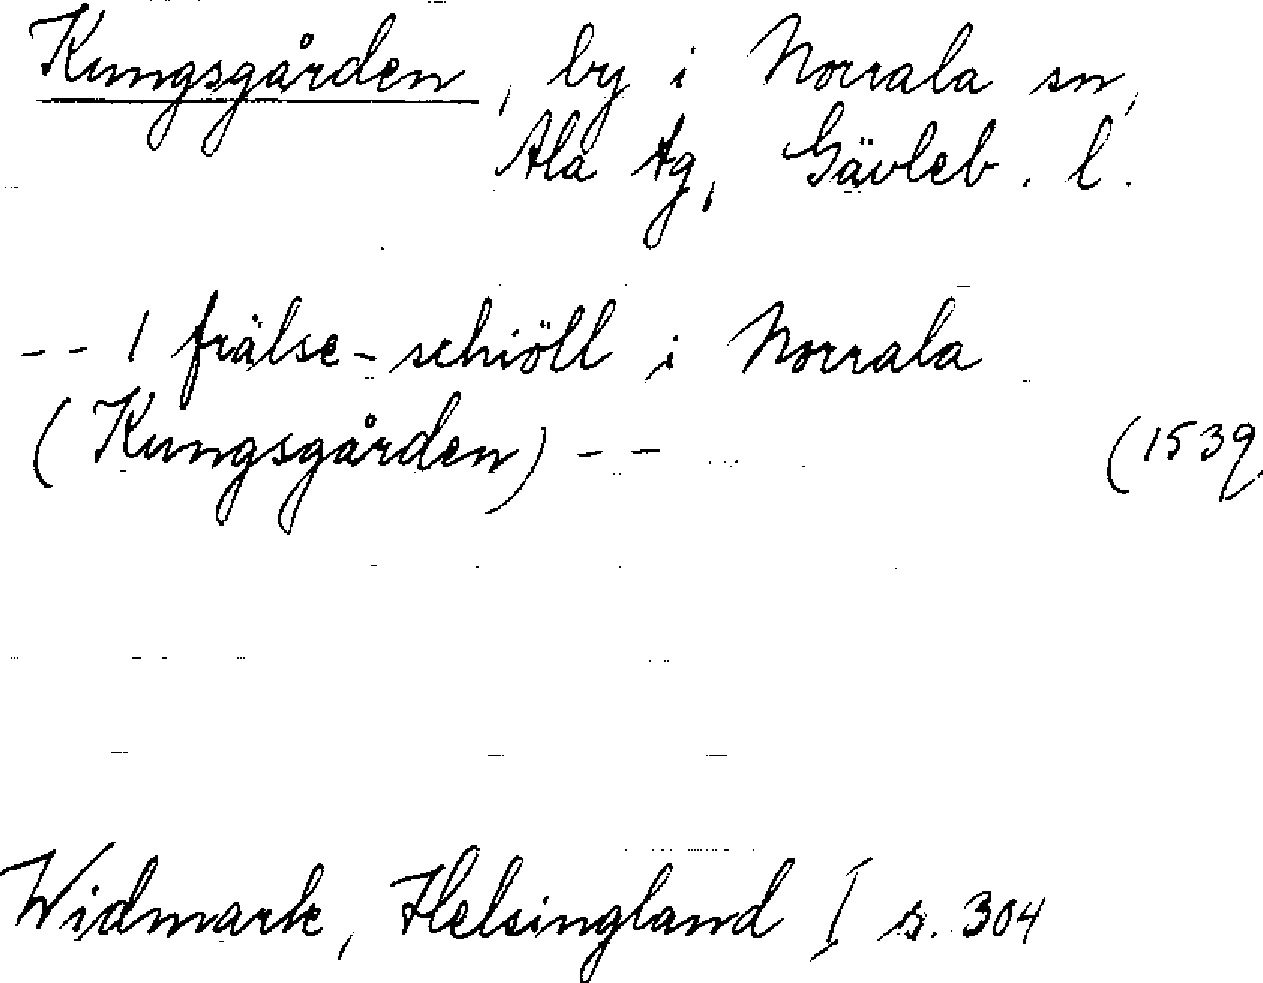 Kungsgården, by i Norrala sn,
Ala tg, Gävleb. l.
-- 1 frälse-schiöll i Norrala
(Kungsgården) -- (1539
Widmark, Helsingland I s. 304